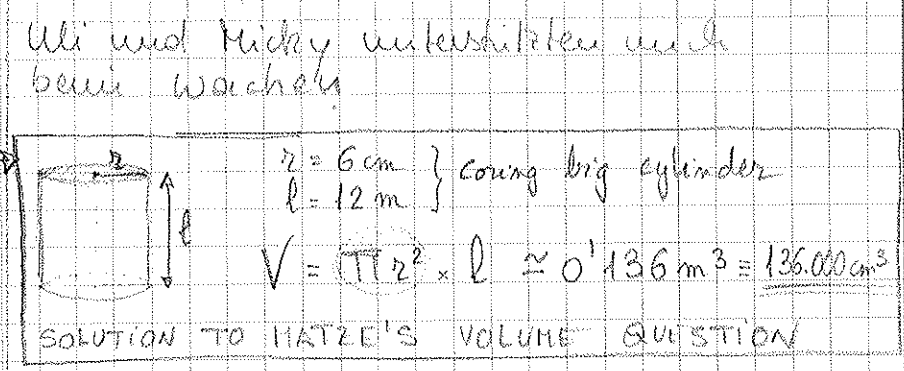 Uli und Micky unterstützten mich
beim wachen
r
r = 6 cm } coring big cylinder
l = 12 m
l
V = π r² × l ≃ 0'136 m³ ≡ 136.000 cm³
SOLUTION TO MATZE'S VOLUME QUESTION